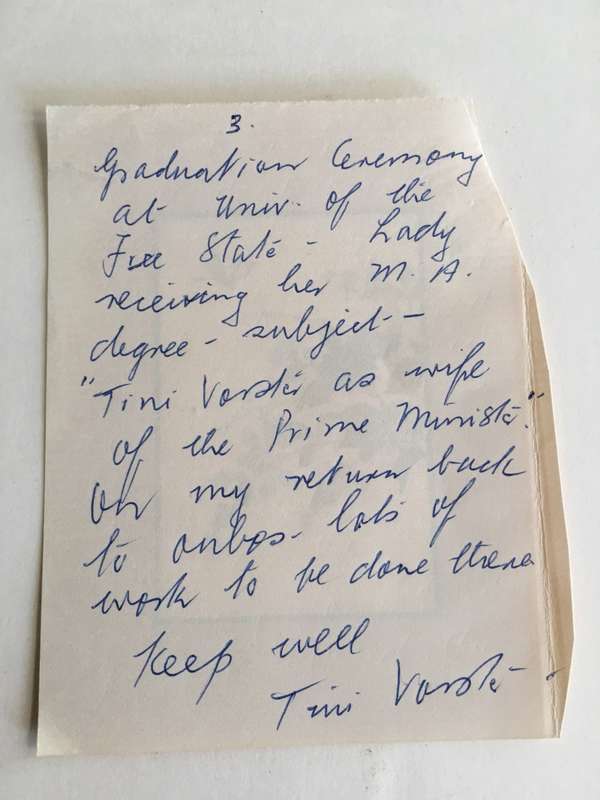 3.
Graduation Ceremony
at Univ. of the
Free State - Lady
receiving her M.A.
degree - subject -
"Tini Vorster as wife
of the Prime Minister."
On my return back
to Oubos - lots of
work to be done there
Keep well
Tini Vorster